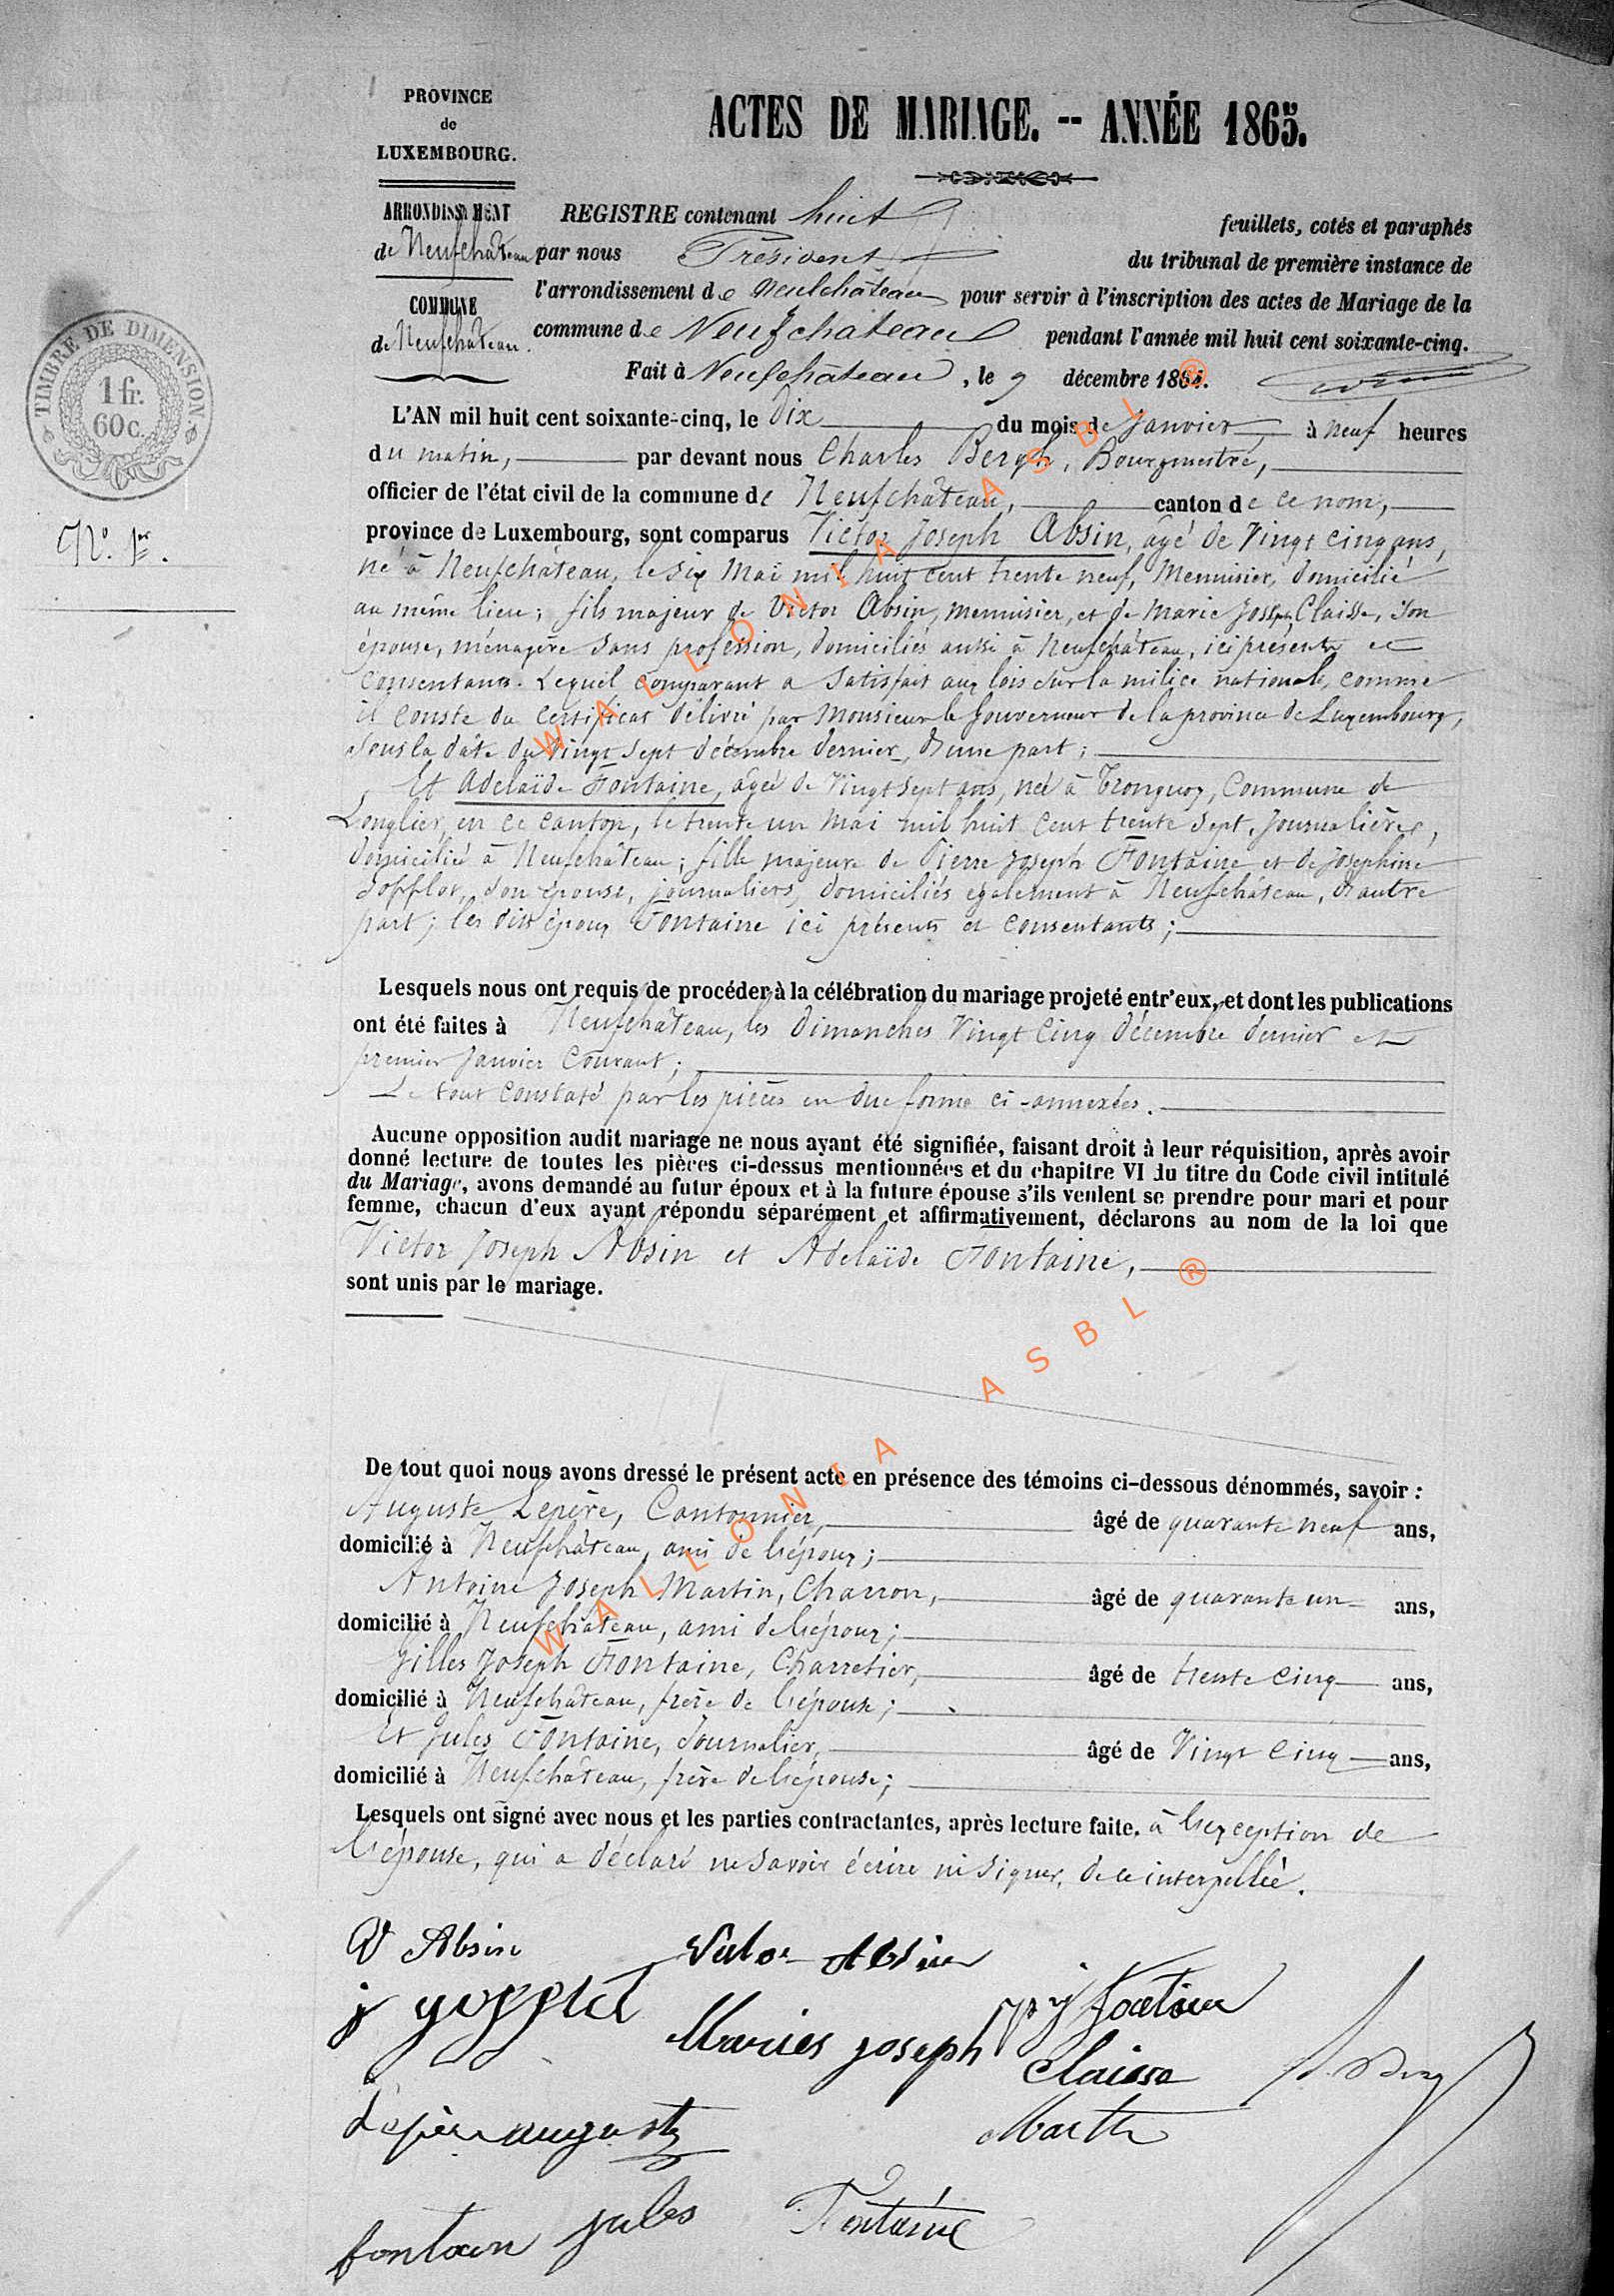 PROVINCE
de
LUXEMBOURG.
ARRONDISSEMENT
de Neufchâteau
COMMUNE
de Neufchâteau.
TIMBRE DE DIMENSION
1 fr.
60 c.
N.º 1er.
ACTES DE MARIAGE. -- ANNÉE 1865.
REGISTRE contenant huit feuillets, cotés et paraphés
par nous Président du tribunal de première instance de
l'arrondissement de Neufchâteau pour servir à l'inscription des actes de Mariage de la
commune de Neufchâteau pendant l'année mil huit cent soixante-cinq.
Fait à Neufchâteau, le 9 décembre 186
L'AN mil huit cent soixante-cinq, le Dix du mois de Janvier à neuf heures
du matin, par devant nous Charles Bergh, Bourgmestre,
officier de l'état civil de la commune de Neufchâteau, canton de ce nom,
province de Luxembourg, sont comparus Victor Joseph Absin, âgé de Vingt cinq ans,
né à Neufchâteau, le six Mai mil huit cent trente neuf, Menuisier, domicilié
au même lieu; fils majeur de Victor Absin, menuisier, et de Marie Joseph Claisse, son
épouse, ménagère sans profession, domiciliés aussi à Neufchâteau, ici présents et
consentans. Lequel comparant a satisfait aux lois sur la milice nationale, comme
il conste du certificat délivré par Monsieur le Gouverneur de la province de Luxembourg,
sous la date du Vingt sept décembre dernier, d'une part;
Et Adelaïde Fontaine, âgée de Vingt sept ans, née à Tronquoy, Commune de
Longlier, en ce canton, le trente un Mai mil huit cent trente sept, Journalière,
domiciliée à Neufchâteau; fille majeure de Pierre Joseph Fontaine et de Josephine
Gofflot, son épouse, journaliers, domiciliés également à Neufchâteau, d'autre
part; les dits époux Fontaine ici présents et consentants;
Lesquels nous ont requis de procéder à la célébration du mariage projeté entr'eux, et dont les publications
ont été faites à Neufchâteau, les Dimanches Vingt Cinq décembre dernier et
premier Janvier Courant;
Le tout constaté par les pièces en due forme ci-annexées.
Aucune opposition audit mariage ne nous ayant été signifiée, faisant droit à leur réquisition, après avoir
donné lecture de toutes les pièces ci-dessus mentionnées et du chapitre VI du titre du Code civil intitulé
du Mariage, avons demandé au futur époux et à la future épouse s'ils veulent se prendre pour mari et pour
femme, chacun d'eux ayant répondu séparément et affirmativement, déclarons au nom de la loi que
Victor Joseph Absin et Adelaïde Fontaine,
sont unis par le mariage.
De tout quoi nous avons dressé le présent acte en présence des témoins ci-dessous dénommés, savoir :
Auguste Lepère, Cantonnier, âgé de quarante neuf ans,
domicilié à Neufchâteau, ami de l'époux;
Antoine Joseph Martin, Charron, âgé de quarante un ans,
domicilié à Neufchâteau, ami de l'époux;
Gilles Joseph Fontaine, Charretier, âgé de trente cinq ans,
domicilié à Neufchâteau, frère de l'épouse;
Et Jules Fontaine, Journalier, âgé de Vingt Cinq ans,
domicilié à Neufchâteau, frère de l'épouse;
Lesquels ont signé avec nous et les parties contractantes, après lecture faite, à l'exception de
l'épouse, qui a déclaré ne savoir écrire ni signer, de ce interpellée.
V Absin Victor Absin
j gofflot
Maries joseph Claisse
Lepère auguste
fontain jules Fontaine
WALLONIA ASBL ®
WALLONIA ASBL ®